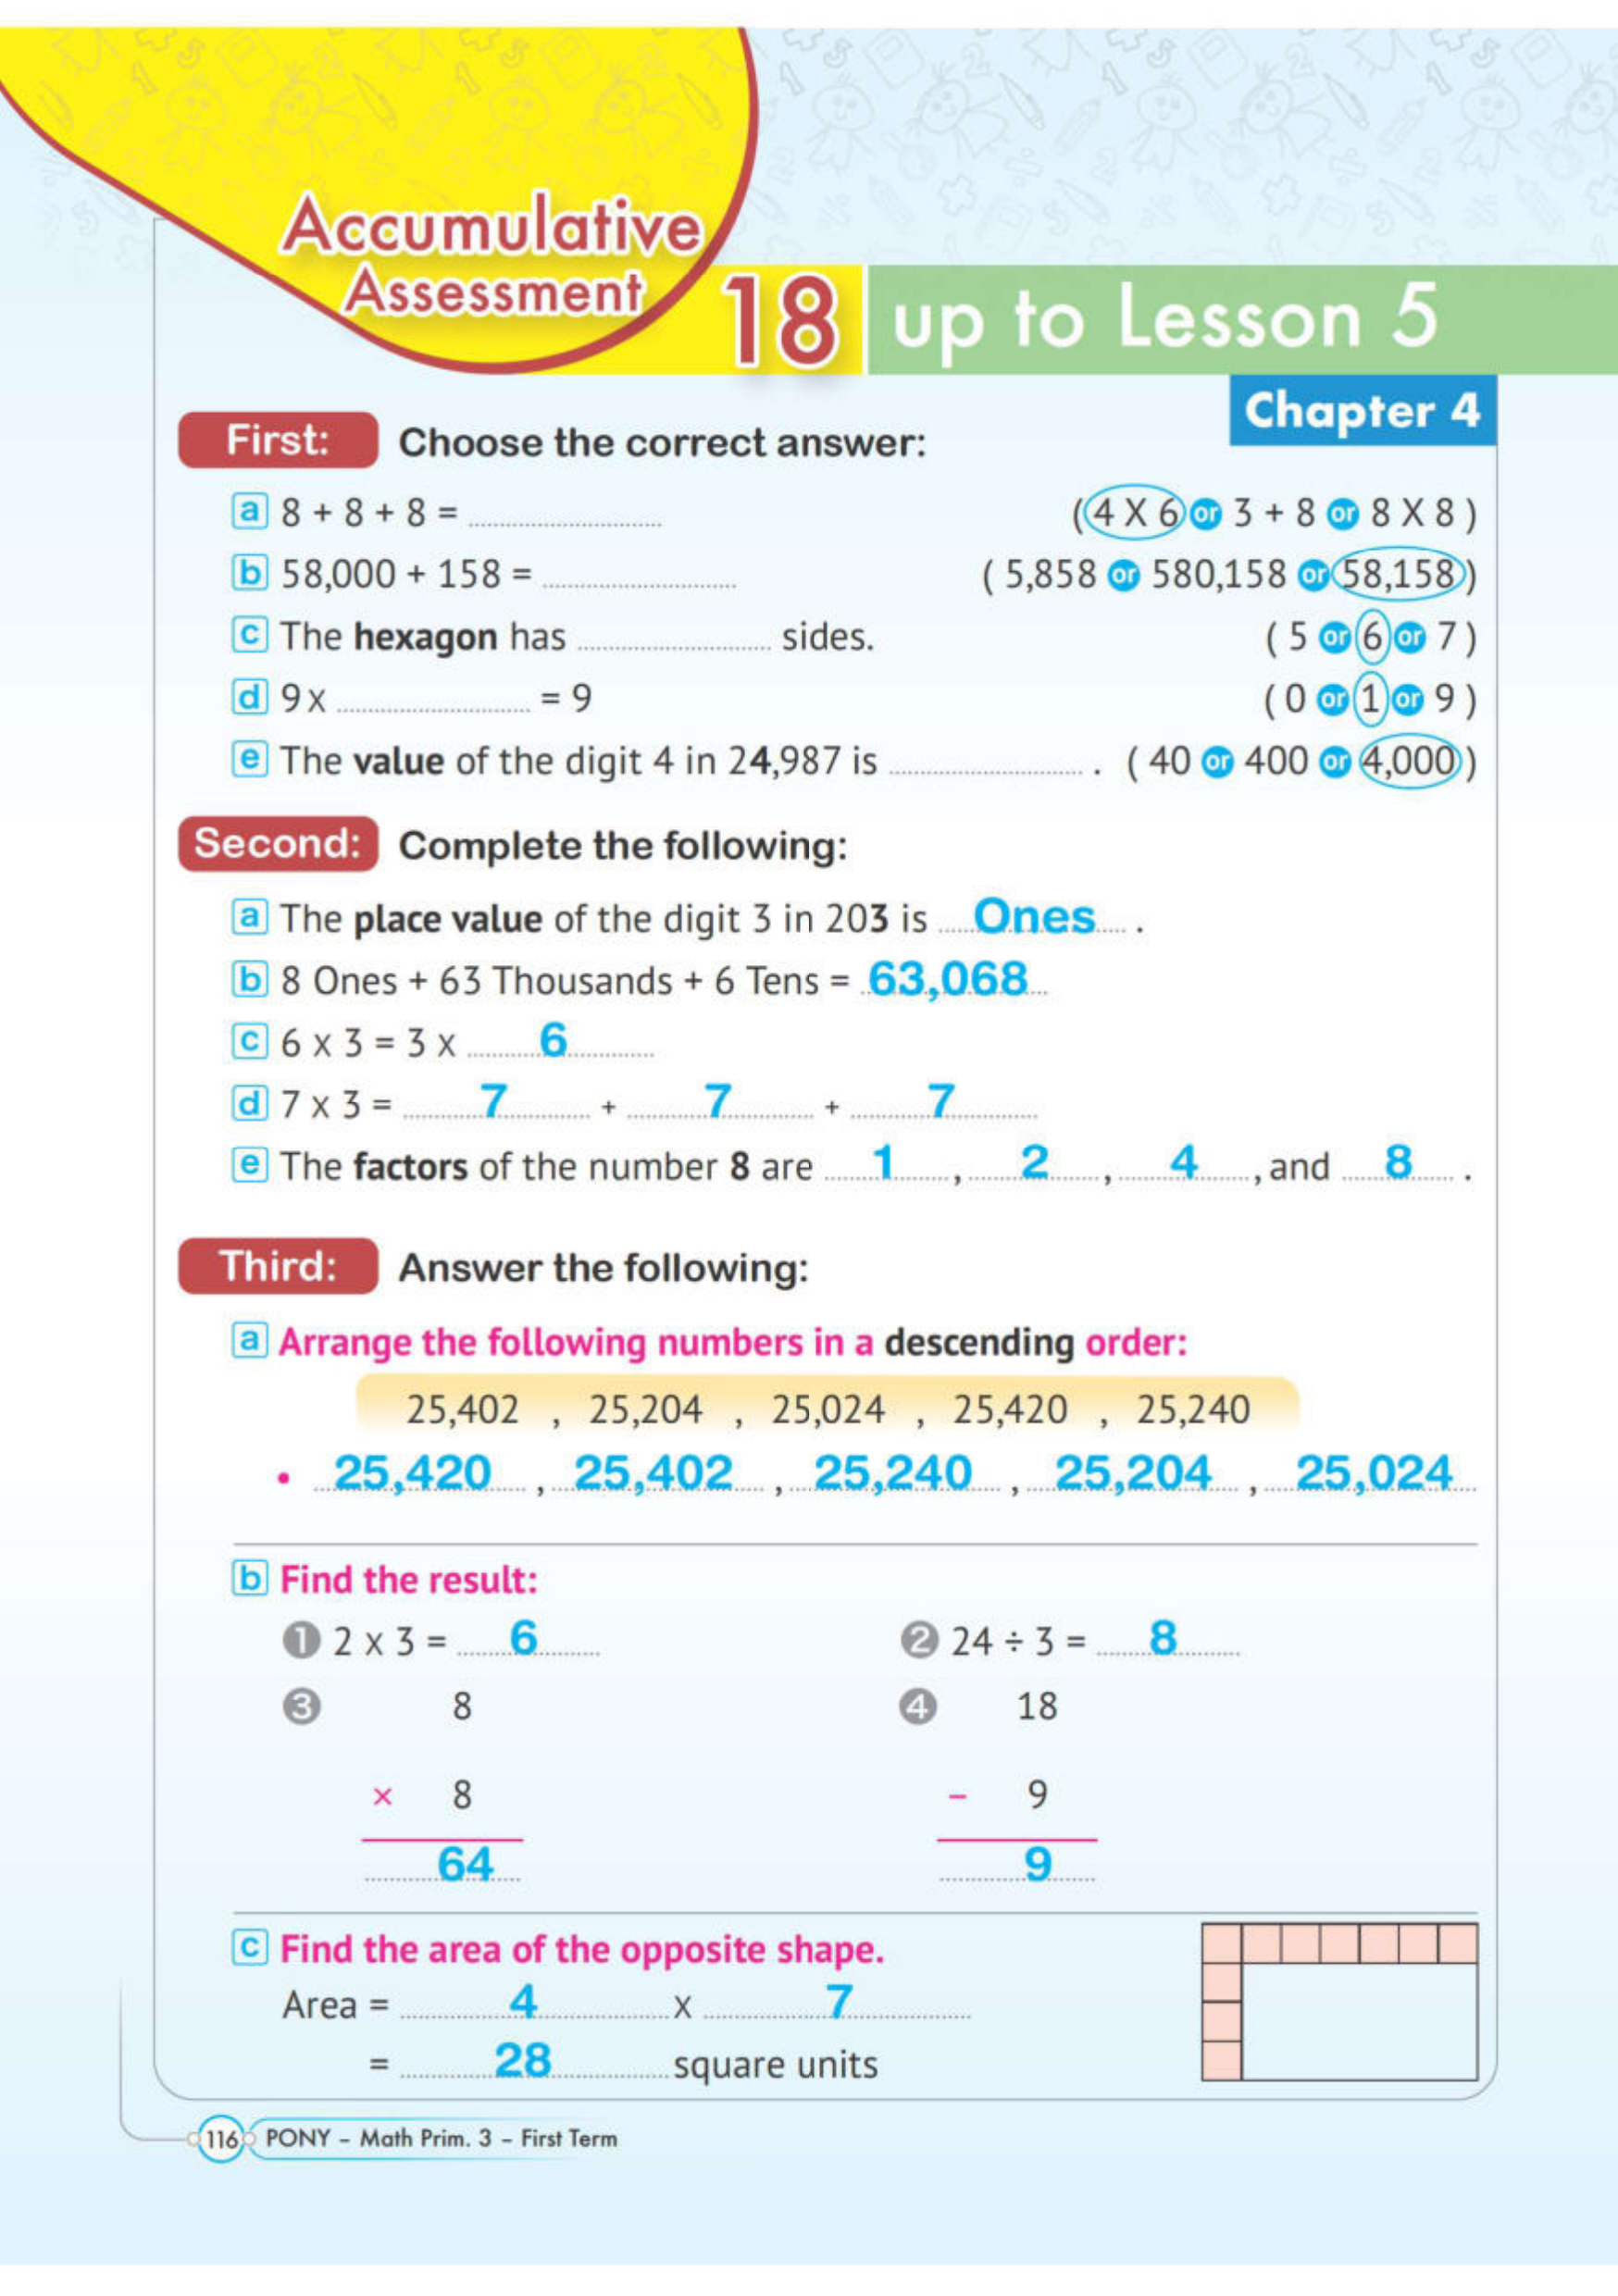 Accumulative
Assessment
18 up to Lesson 5
Chapter 4
First: Choose the correct answer:
a 8 + 8 + 8 = .......................... ( 4 X 6 or 3 + 8 or 8 X 8 )
b 58,000 + 158 = .......................... ( 5,858 or 580,158 or 58,158 )
c The hexagon has .......................... sides. ( 5 or 6 or 7 )
d 9 x .......................... = 9 ( 0 or 1 or 9 )
e The value of the digit 4 in 24,987 is .......................... . ( 40 or 400 or 4,000 )
Second: Complete the following:
a The place value of the digit 3 in 203 is Ones .
b 8 Ones + 63 Thousands + 6 Tens = 63,068
c 6 x 3 = 3 x 6
d 7 x 3 = 7 + 7 + 7
e The factors of the number 8 are 1 , 2 , 4 , and 8 .
Third: Answer the following:
a Arrange the following numbers in a descending order:
25,402 , 25,204 , 25,024 , 25,420 , 25,240
• 25,420 , 25,402 , 25,240 , 25,204 , 25,024
b Find the result:
1 2 x 3 = 6 2 24 ÷ 3 = 8
3 8 4 18
× 8 – 9
64 9
c Find the area of the opposite shape.
Area = 4 x 7
= 28 square units
116 PONY – Math Prim. 3 – First Term